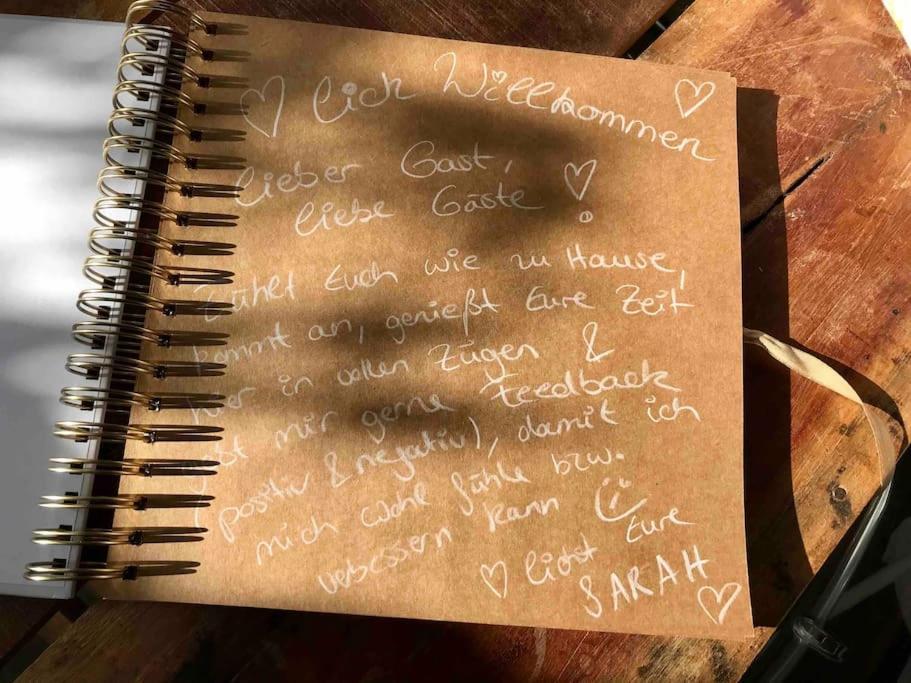 ♡lich Willkommen ♡
Lieber Gast,
liebe Gäste ♡
Fühlt Euch wie zu Hause,
kommt an, genießt Eure Zeit
hier in vollen Zügen &
gebt mir gerne Feedback
(positiv & negativ), damit ich
mich wohl fühle bzw.
verbessern kann ☺
♡lichst Eure
SARAH ♡